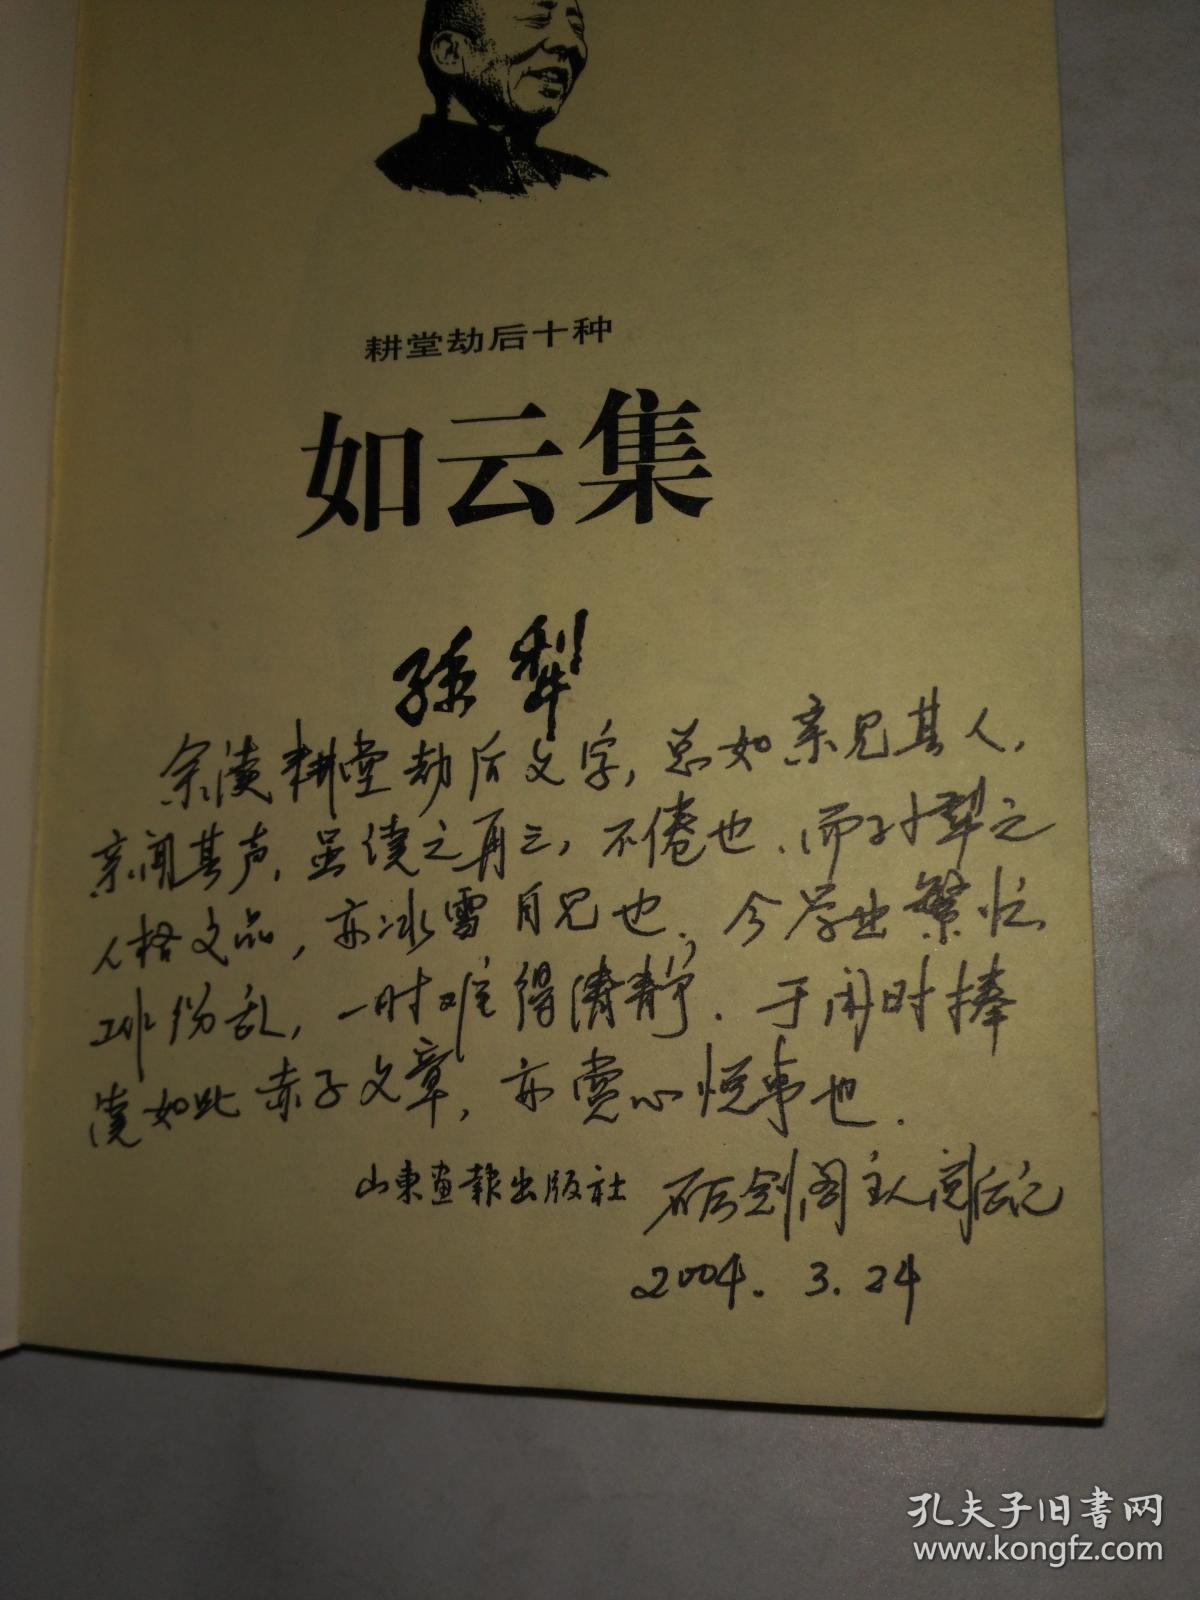 耕堂劫后十种
如云集
孙犁
余读耕堂劫后文字，总如亲见其人，
亲闻其声，虽读之再三，不倦也．而孙犁之
人格文品，亦冰雪自见也，今学业繁忙
工作纷乱，一时难得清静．于闲时捧
读如此赤子文章，亦赏心悦事也．
山東画報出版社
砺剑阁主人阅后记
2004.3.24
孔夫子旧書网
www.kongfz.com